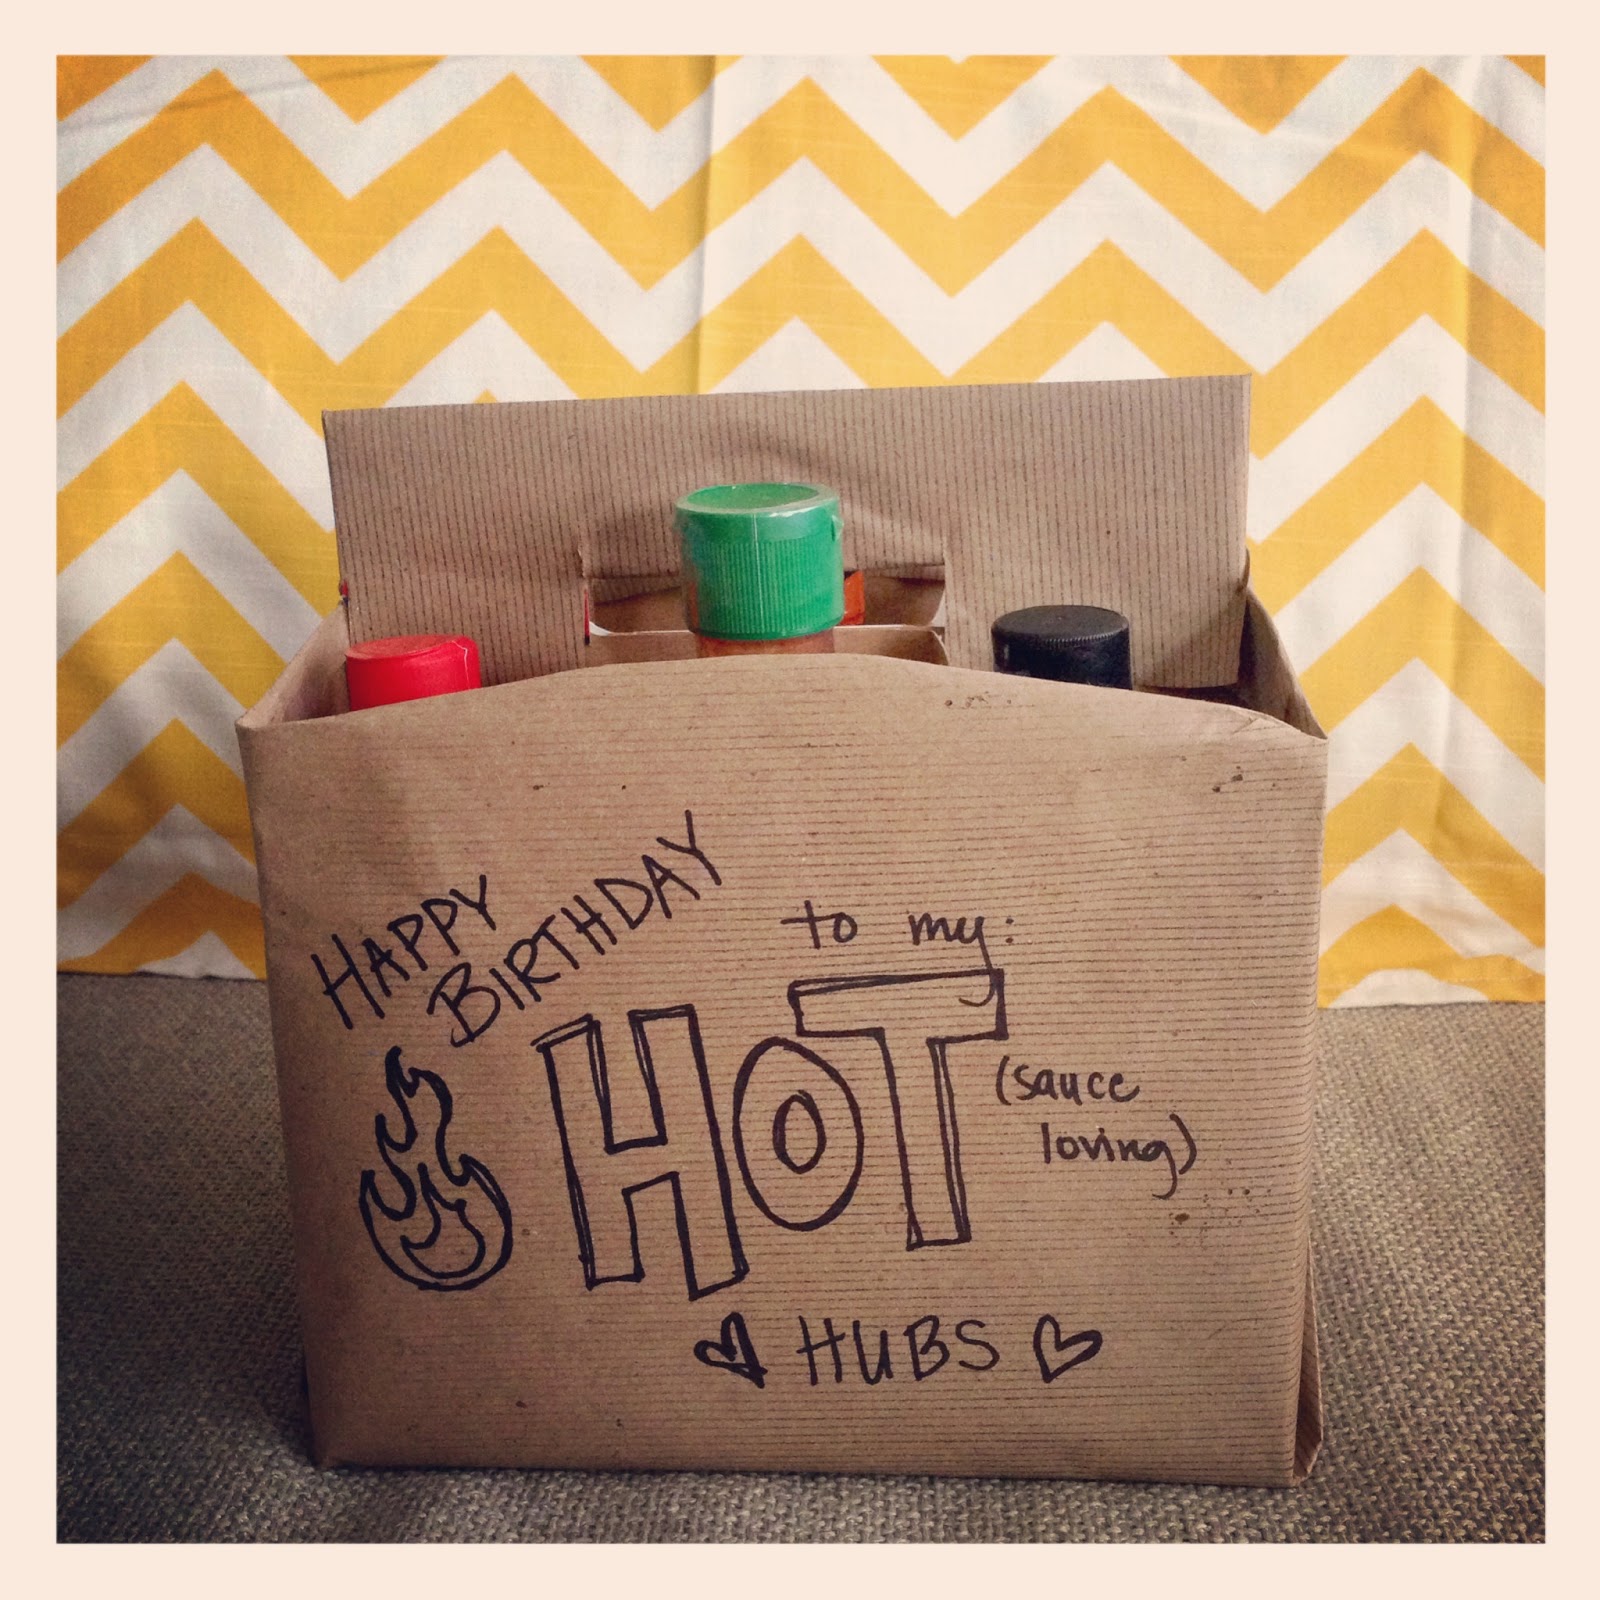 HAPPY
BIRTHDAY
to my:
HOT
(sauce
loving)
HUBS